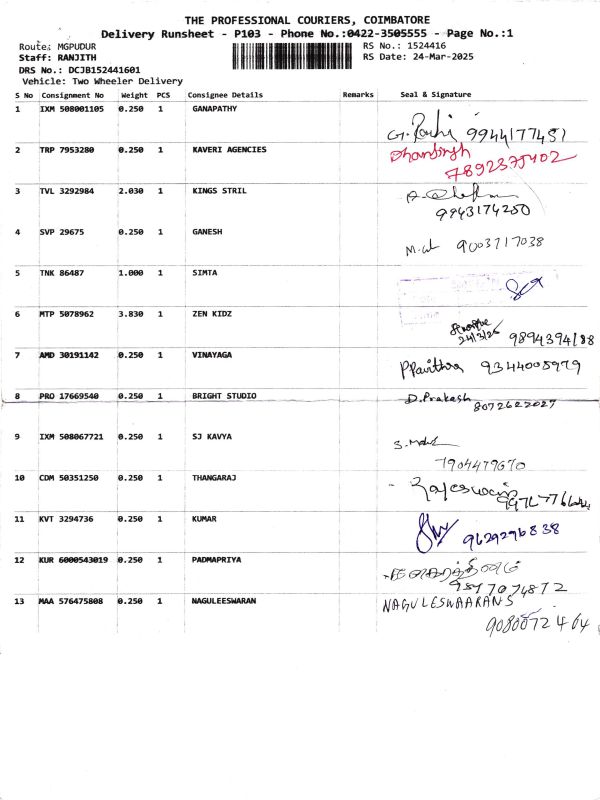 THE PROFESSIONAL COURIERS, COIMBATORE
Delivery Runsheet - P103 - Phone No.:0422-3505555 - Page No.:1
Route: MGPUDUR
RS No.: 1524416
Staff: RANJITH
RS Date: 24-Mar-2025
DRS No.: DCJB152441601
Vehicle: Two Wheeler Delivery
S No Consignment No Weight PCS Consignee Details Remarks Seal & Signature
1 IXM 508001105 0.250 1 GANAPATHY
9944177451
2 TRP 7953280 0.250 1 KAVERI AGENCIES
7892375402
3 TVL 3292984 2.030 1 KINGS STRIL
9943174250
4 SVP 29675 0.250 1 GANESH
9003717038
5 TNK 86487 1.000 1 SIMTA
6 MTP 5078962 3.830 1 ZEN KIDZ
24/3/25 9894394188
7 AMD 30191142 0.250 1 VINAYAGA
PPavithra 9344005979
8 PRO 17669540 0.250 1 BRIGHT STUDIO
D.Prakash 8072622027
9 IXM 508067721 0.250 1 SJ KAVYA
7904479670
10 CDM 50351250 0.250 1 THANGARAJ
11 KVT 3294736 0.250 1 KUMAR
9629296838
12 KUR 6000543019 0.250 1 PADMAPRIYA
13 MAA 576475808 0.250 1 NAGULEESWARAN
NAGULESWAARAN S